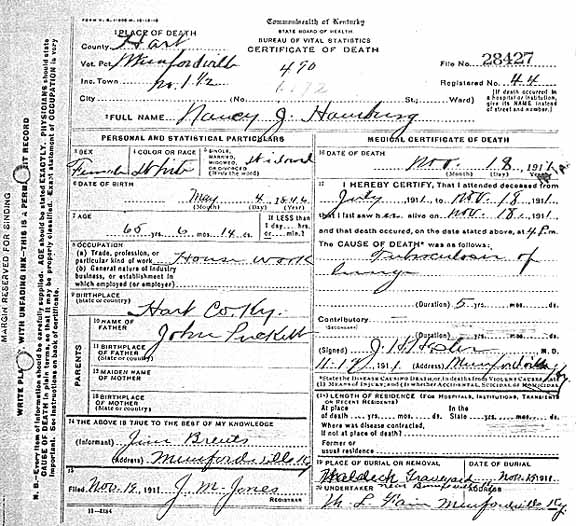 FORM V. S.
Commonwealth of Kentucky
STATE BOARD OF HEALTH
BUREAU OF VITAL STATISTICS
CERTIFICATE OF DEATH
1 PLACE OF DEATH
County Hart
Vot. Pct Munfordville 490
File No. 28427
Inc. Town No. 1 1/2
Registered No. 44
City (No. St; Ward)
(If death occurred in a hospital or institution, give its NAME instead of street and number.)
2 FULL NAME Nancy J.
PERSONAL AND STATISTICAL PARTICULARS
3 SEX Female
4 COLOR OR RACE White
5 SINGLE, MARRIED, WIDOWED, OR DIVORCED (Write the word) Widowed
6 DATE OF BIRTH
May 4 1846
(Month) (Day) (Year)
7 AGE
65 yrs. 6 mos. 14 ds.
If LESS than 1 day, hrs. or min.?
8 OCCUPATION
(a) Trade, profession, or particular kind of work House Work
(b) General nature of industry business, or establishment in which employed (or employer)
9 BIRTHPLACE (State or country) Hart Co. Ky.
PARENTS
10 NAME OF FATHER John Puckett
11 BIRTHPLACE OF FATHER (State or country)
12 MAIDEN NAME OF MOTHER
13 BIRTHPLACE OF MOTHER (State or country)
14 THE ABOVE IS TRUE TO THE BEST OF MY KNOWLEDGE
(Informant) Jim
(Address) Munfordville Ky
15
Filed Nov. 19, 1911 J. M. Jones
REGISTRAR
11-3184
MEDICAL CERTIFICATE OF DEATH
16 DATE OF DEATH
Nov. 18, 1911
(Month) (Day) (Year)
17 I HEREBY CERTIFY, That I attended deceased from
July, 1911 to Nov. 18, 1911
that I last saw her alive on Nov. 18, 1911
and that death occurred, on the date stated above, at 4 P.m.
The CAUSE OF DEATH* was as follows:
Tuberculosis of
Lungs
(Duration) 5 yrs. mos. ds.
Contributory
(SECONDARY)
(Duration) yrs. mos. ds.
(Signed) M. D.
1911 (Address) Munfordville Ky
*State the DISEASE CAUSING DEATH, or, in deaths from VIOLENT CAUSES, state (1) MEANS OF INJURY; and (2) whether ACCIDENTAL, SUICIDAL or HOMICIDAL.
18 LENGTH OF RESIDENCE (FOR HOSPITALS, INSTITUTIONS, TRANSIENTS OR RECENT RESIDENTS)
At place of death yrs. mos. ds. In the State yrs. mos. ds.
Where was disease contracted, if not at place of death?
Former or usual residence
19 PLACE OF BURIAL OR REMOVAL
DATE OF BURIAL
Waldeck Graveyard Nov. 19, 1911
near Munfordville
20 UNDERTAKER ADDRESS
Munfordville Ky.
MARGIN RESERVED FOR BINDING
WRITE PLAINLY WITH UNFADING INK—THIS IS A PERMANENT RECORD
N. B.—Every item of information should be carefully supplied. AGE should be stated EXACTLY. PHYSICIANS should state CAUSE OF DEATH in plain terms, so that it may be properly classified. Exact statement of OCCUPATION is very important. See instructions on back of certificate.